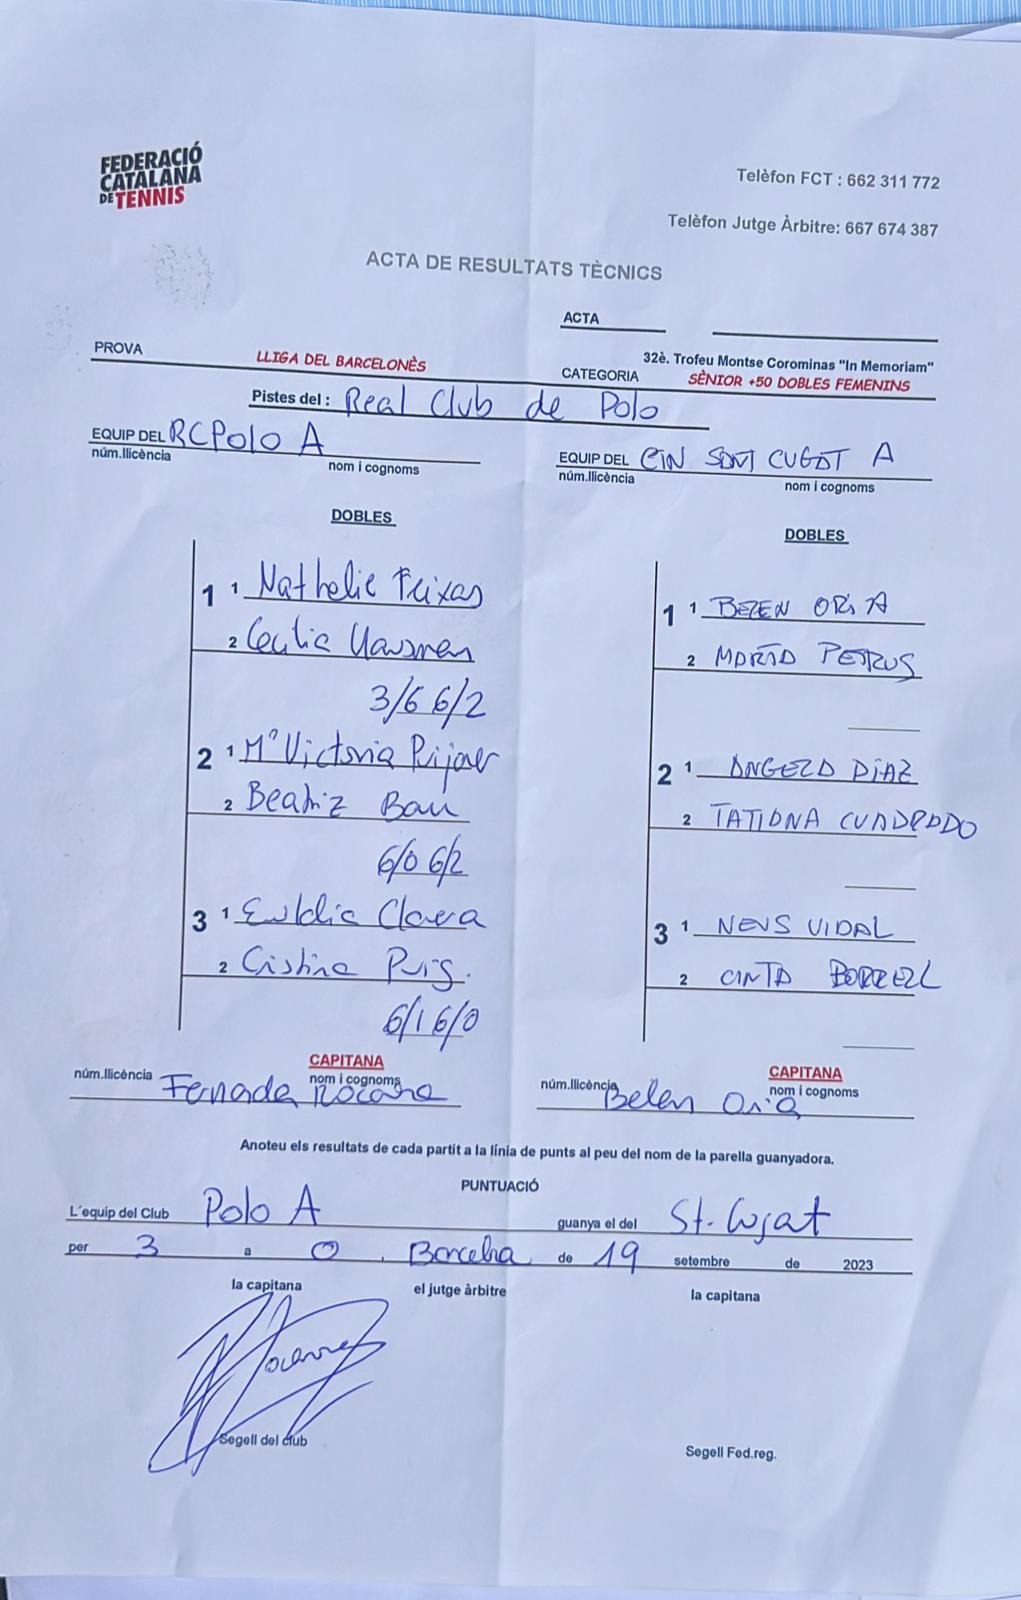 FEDERACIÓ
CATALANA
DE TENNIS
Telèfon FCT : 662 311 772
Telèfon Jutge Àrbitre: 667 674 387
ACTA DE RESULTATS TÈCNICS
ACTA
PROVA LLIGA DEL BARCELONÈS
32è. Trofeu Montse Corominas "In Memoriam"
CATEGORIA SÈNIOR +50 DOBLES FEMENINS
Pistes del : Real Club de Polo
EQUIP DEL RCPolo A
núm.llicència nom i cognoms
EQUIP DEL CIN SANT CUGAT A
núm.llicència nom i cognoms
DOBLES
1 1 Nathalie Feixas
2 Cecilia
3/6 6/2
2 1 Mª Victoria
2 Beatriz Bau
6/0 6/2
3 1 Eulàlia Clavera
2 Cistina Puig.
6/1 6/0
DOBLES
1 1 BELEN ORIA
2 MARIA PETRUS
2 1 ANGELA DIAZ
2 TATIANA CUADRADO
3 1 NEUS VIDAL
2 CINTA BORRELL
CAPITANA
núm.llicència nom i cognoms
Fernada
CAPITANA
núm.llicència nom i cognoms
Belen Oria
Anoteu els resultats de cada partit a la línia de punts al peu del nom de la parella guanyadora.
PUNTUACIÓ
L´equip del Club Polo A guanya el del St. Cugat
per 3 a 0 , Barcelona de 19 setembre de 2023
la capitana el jutge àrbitre la capitana
Segell del club
Segell Fed.reg.